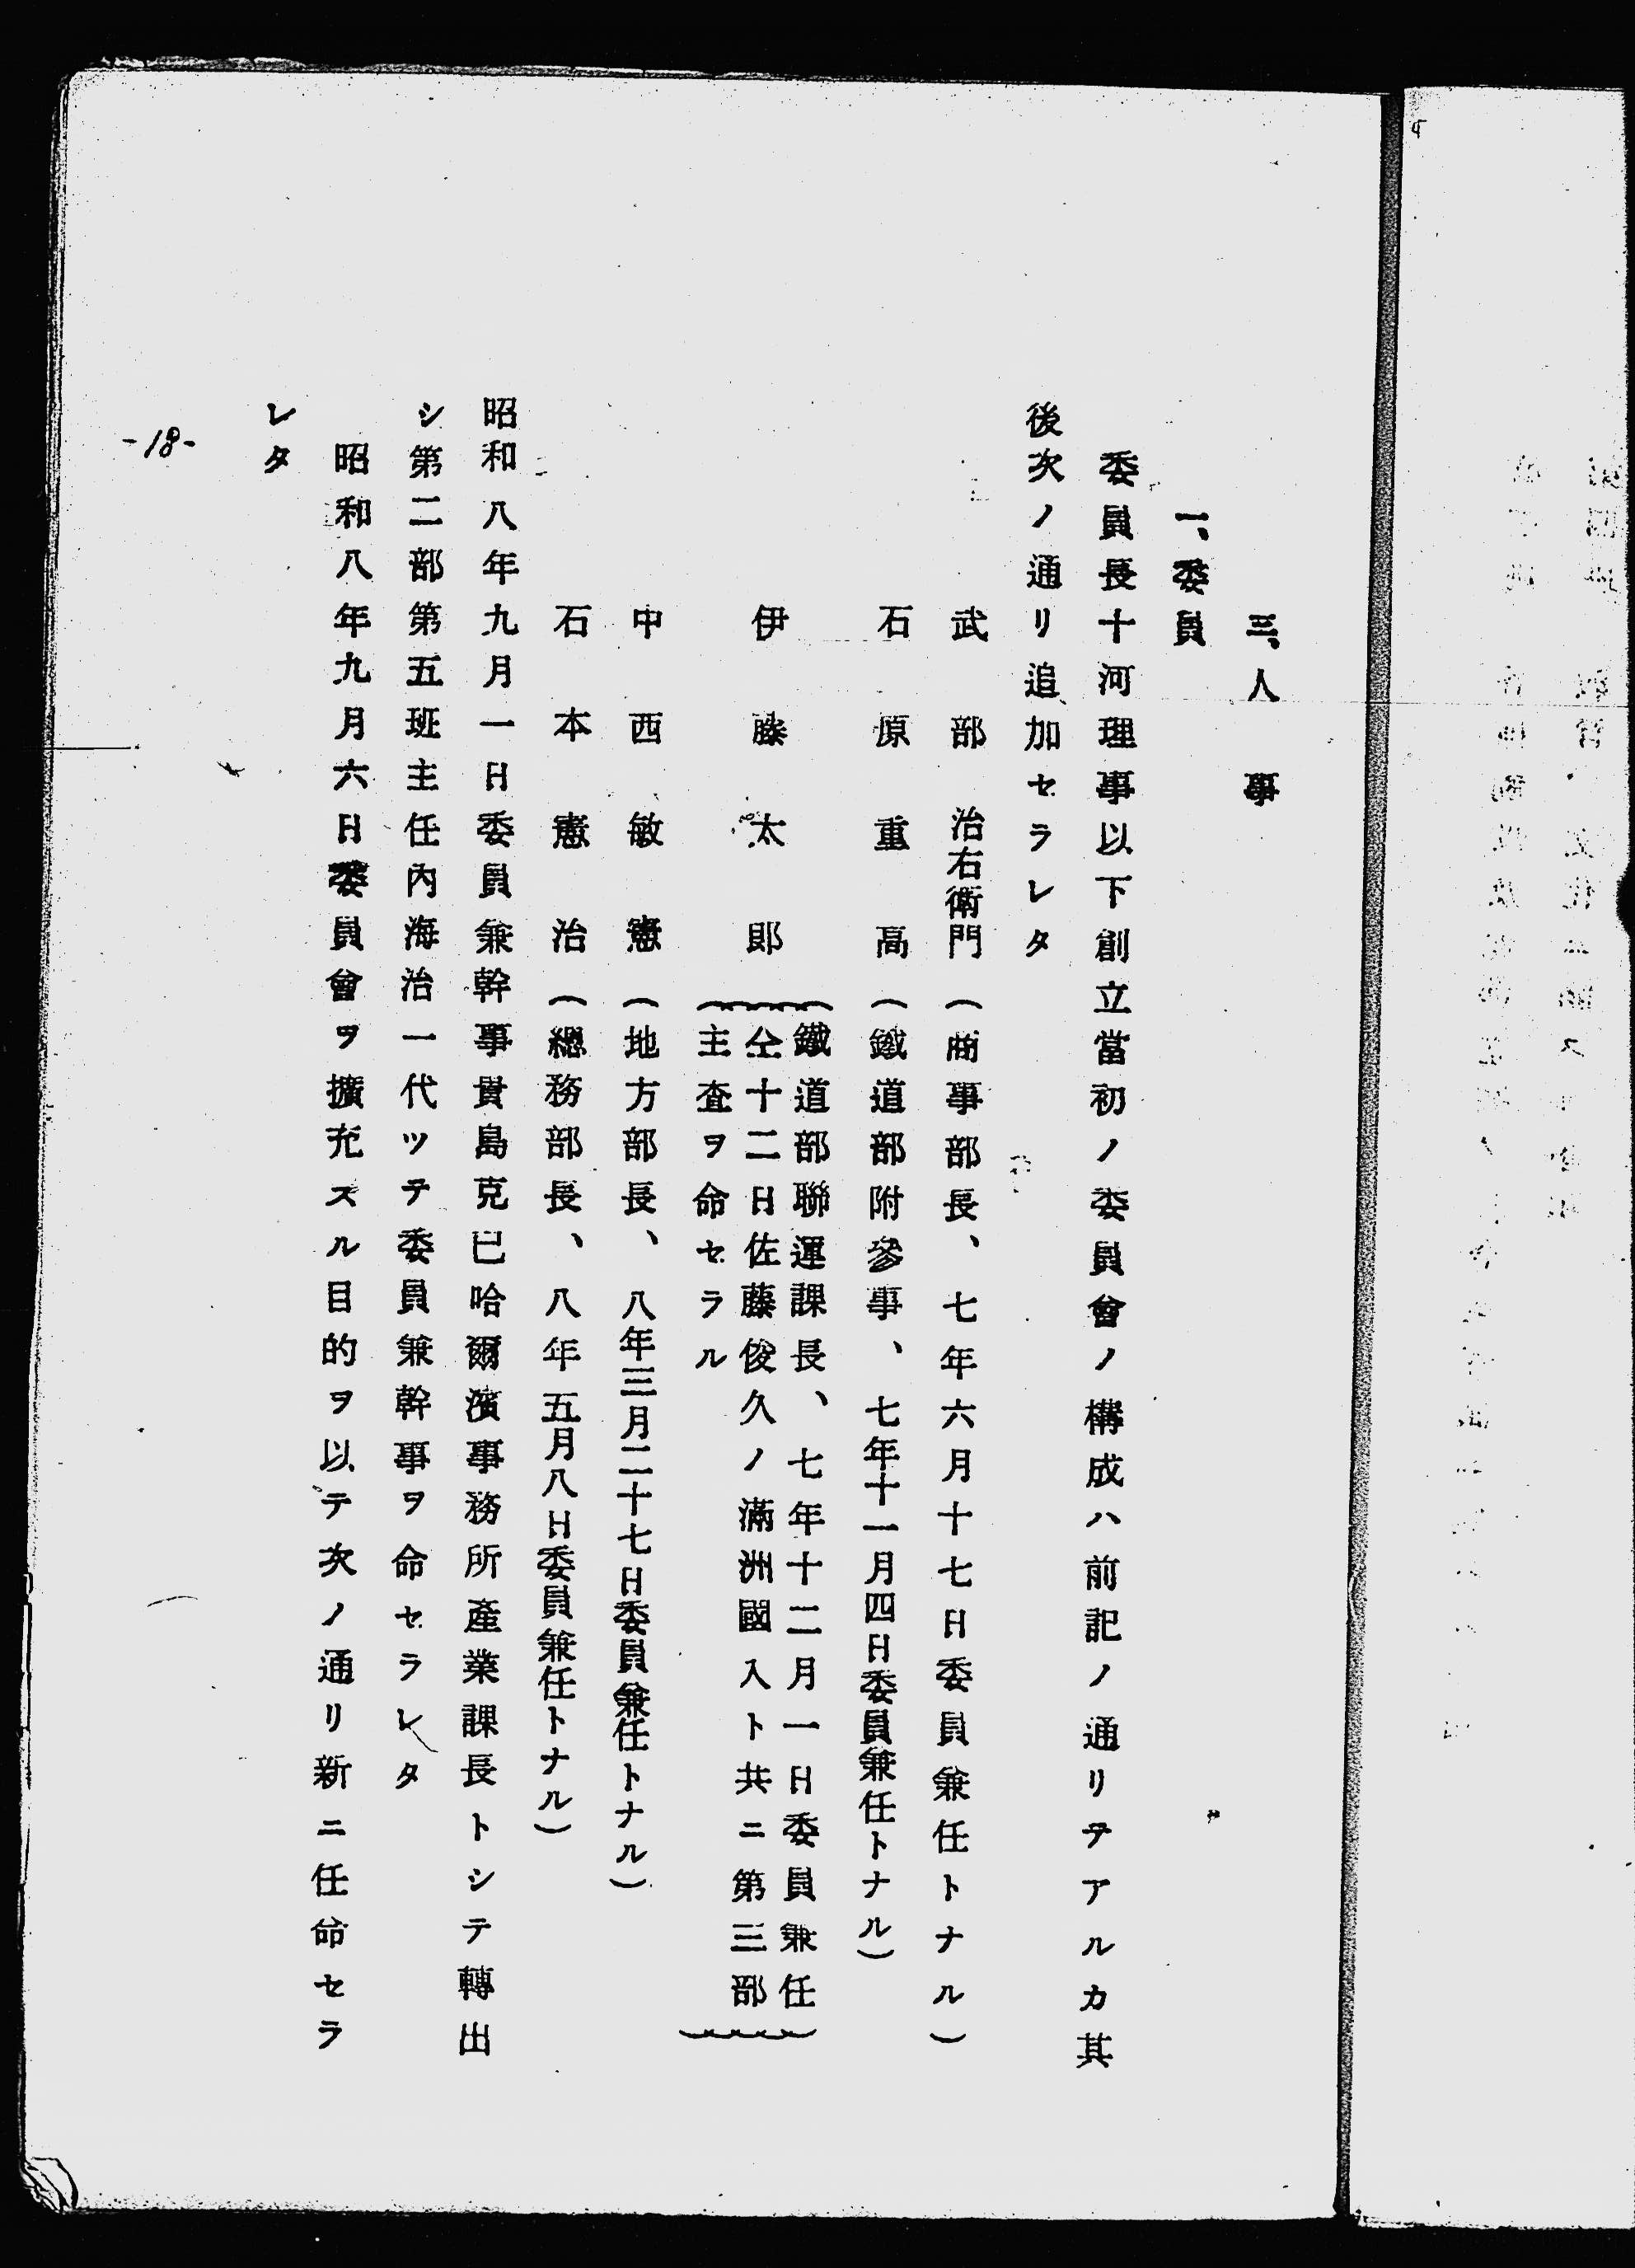 三、人事
一、委員
委員長十河理事以下創立當初ノ委員會ノ構成ハ前記ノ通リテアルカ其
後次ノ通リ追加セラレタ
武部治右衛門（商事部長、七年六月十七日委員兼任トナル）
石原重高（鐵道部附參事、七年十一月四日委員兼任トナル）
伊藤太郎（鐵道部聯運課長、七年十二月一日委員兼任
仝十二日佐藤俊久ノ滿洲國入ト共ニ第三部
主査ヲ命セラル）
中西敏憲（地方部長、八年三月二十七日委員兼任トナル）
石本憲治（總務部長、八年五月八日委員兼任トナル）
昭和八年九月一日委員兼幹事貴島克已哈爾濱事務所產業課長トシテ轉出
シ第二部第五班主任內海治一代ツテ委員兼幹事ヲ命セラレタ
昭和八年九月六日委員會ヲ擴充スル目的ヲ以テ次ノ通リ新ニ任命セラ
レタ
-18-